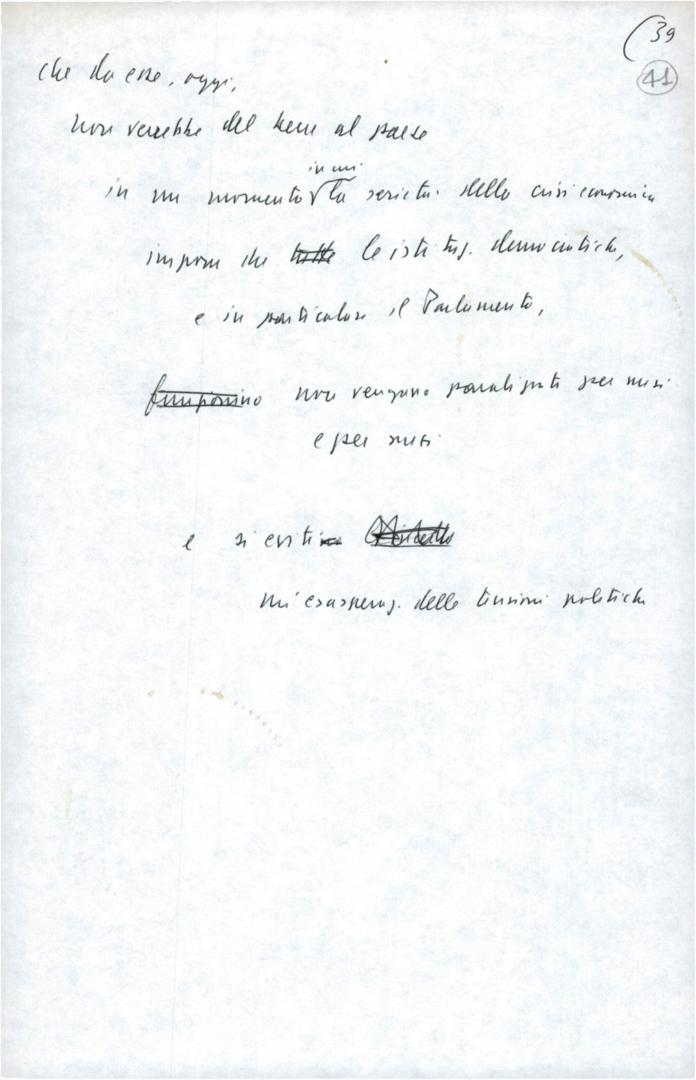 (39
41
che da esse, oggi,
non verrebbe del bene al paese
in cui
in un momento la serietà della crisi economica
impone che tutte le istituz. democratiche,
e in particolare il Parlamento,
funzionino non vengano paralizzati per mesi
e per mesi
e si evitino
un'esasperaz. delle tensioni politiche